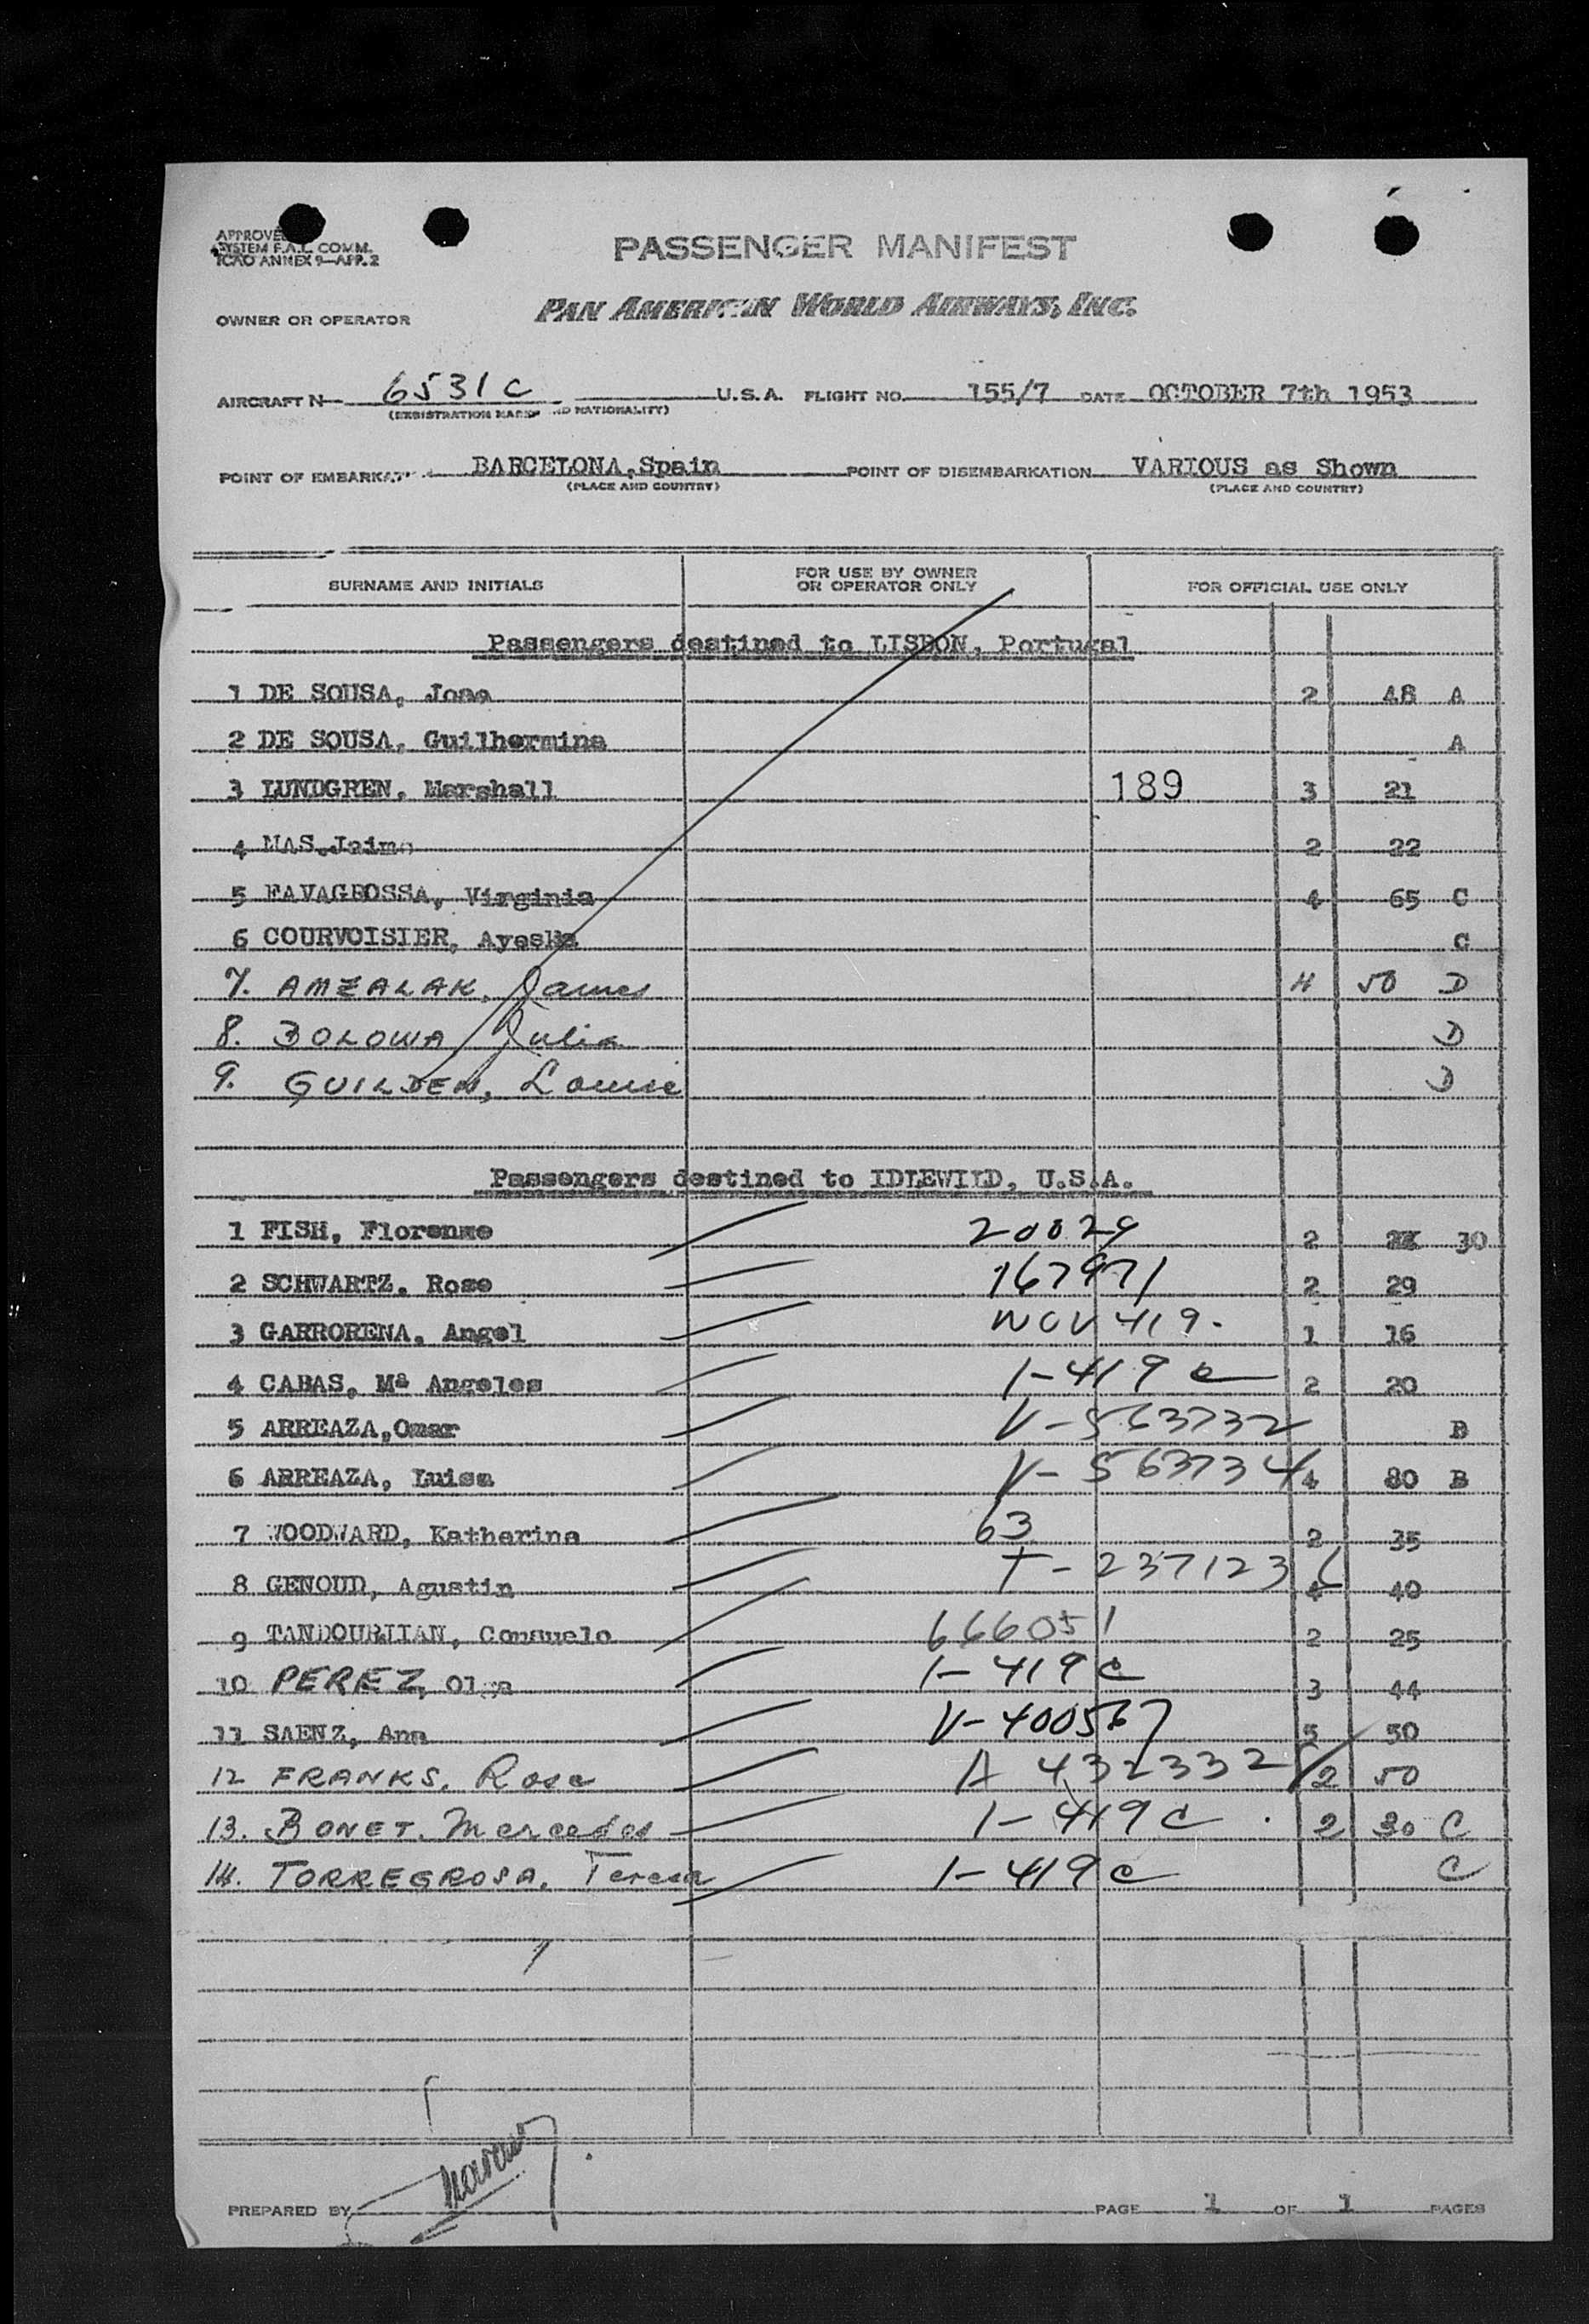 APPROVED
SYSTEM F.A.L. COMM.
ICAO ANNEX 9—APP. 2
PASSENGER MANIFEST
OWNER OR OPERATOR PAN AMERICAN WORLD AIRWAYS, INC.
AIRCRAFT N 6531C U.S.A. FLIGHT NO. 155/7 DATE OCTOBER 7th 1953
(REGISTRATION MARKS AND NATIONALITY)
POINT OF EMBARKAT BARCELONA, Spain POINT OF DISEMBARKATION VARIOUS as Shown
(PLACE AND COUNTRY) (PLACE AND COUNTRY)
SURNAME AND INITIALS FOR USE BY OWNER OR OPERATOR ONLY FOR OFFICIAL USE ONLY
Passengers destined to LISBON, Portugal
1 DE SOUSA, Joao 2 48 A
2 DE SOUSA, Guilhermina A
3 LUNDGREN, Marshall 189 3 21
4 MAS, Jaime 2 22
5 FAVAGROSSA, Virginia 4 65 C
6 COURVOISIER, Ayesha C
7. AMZALAK, James 4 50 D
8. BOLOWA Julia D
9. GUILDEN, Louise D
Passengers destined to IDLEWILD, U.S.A.
1 FISH, Florence 20029 2 30
2 SCHWARTZ, Rose 167971 2 29
3 GARRORENA, Angel 419. 1 16
4 CABAS, Mª Angeles 1-419 c 2 20
5 ARREAZA, Omar V-563732 B
6 ARREAZA, Luisa V-563734 4 80 B
7 WOODWARD, Katherine 63 2 35
8 GENOUD, Agustin T-237123 4 40
9 TANDOURJIAN, Consuelo 666051 2 25
10 PEREZ, Olga 1-419 c 3 44
11 SAENZ, Ana V-400567 5 50
12 FRANKS, Rose A 432332 2 50
13. BONET. Mercedes 1-419 c . 2 30 C
14. TORREGROSA, Teresa 1-419 c C
PREPARED BY PAGE 1 OF 1 PAGES